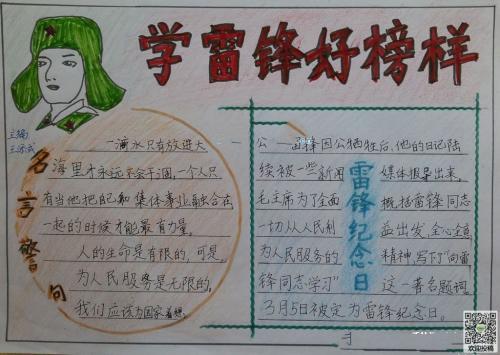 学雷锋好榜样
主编
名言警句
一滴水只有放进大
海里才永远不会干涸,一个人只
有当他把自己和集体事业融合在
一起的时候才能最有力量。
人的生命是有限的,可是,
为人民服务是无限的,
我们应该为国家着想。
雷锋纪念日
雷锋因公牺牲后,他的日记陆
续被一些新闻媒体搜集出来,
毛主席为了全面概括雷锋同志
一切从人民利益出发,全心全意
为人民服务的精神,写下了“向雷
锋同志学习”这一著名题词。
3月5日被定为雷锋纪念日。
欢迎投稿